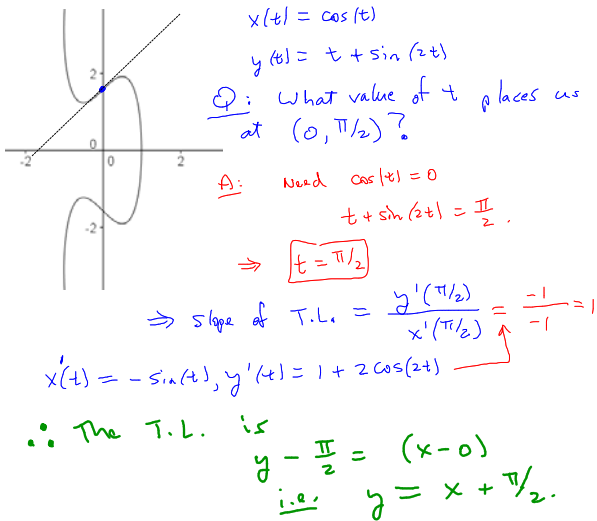 x(t) = cos(t)
y(t) = t + sin(2t)
Q: What value of t places us
at (0, π/2)?
A: Need cos(t) = 0
t + sin(2t) = π/2.
⇒ t = π/2
⇒ slope of T.L. = y'(π/2) / x'(π/2) = -1 / -1 = 1
x'(t) = -sin(t), y'(t) = 1 + 2cos(2t)
∴ The T.L. is
y - π/2 = (x-0)
i.e. y = x + π/2.
2
0
-2
0
2
-2